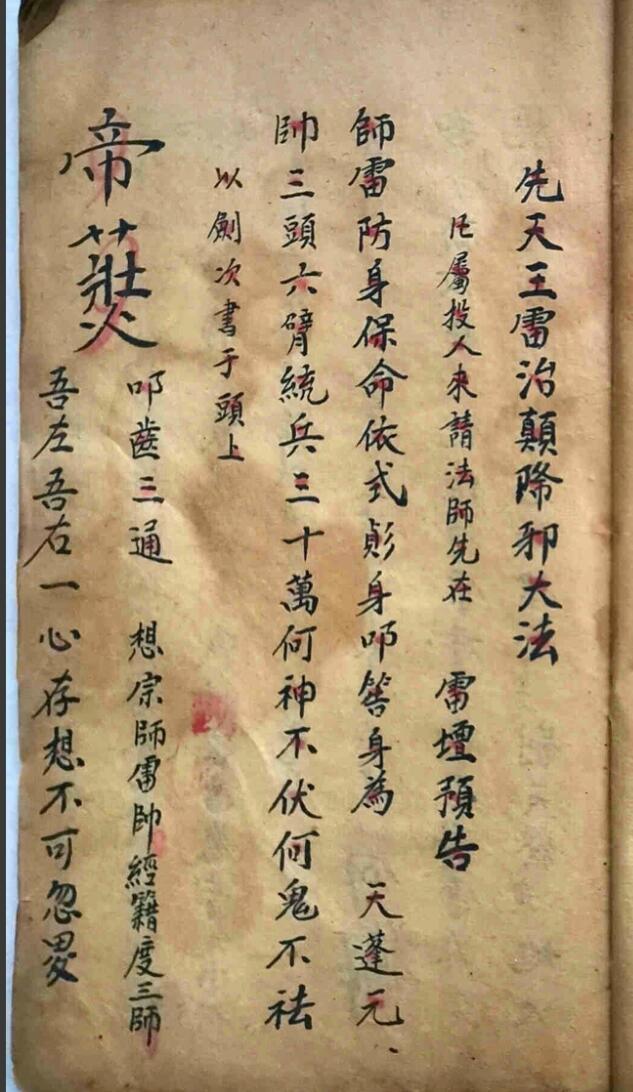 先天王雷治顛除邪大法
凡屬投人來請法師先在 雷壇預告
師雷防身保命依式身叩筶身為 天蓬元
帥三頭六臂統兵三十萬何神不伏何鬼不祛
以劍次書于頭上
帝
叩齒三通 想宗師雷帥經籍度三師
吾左吾右一心存想不可忽畧